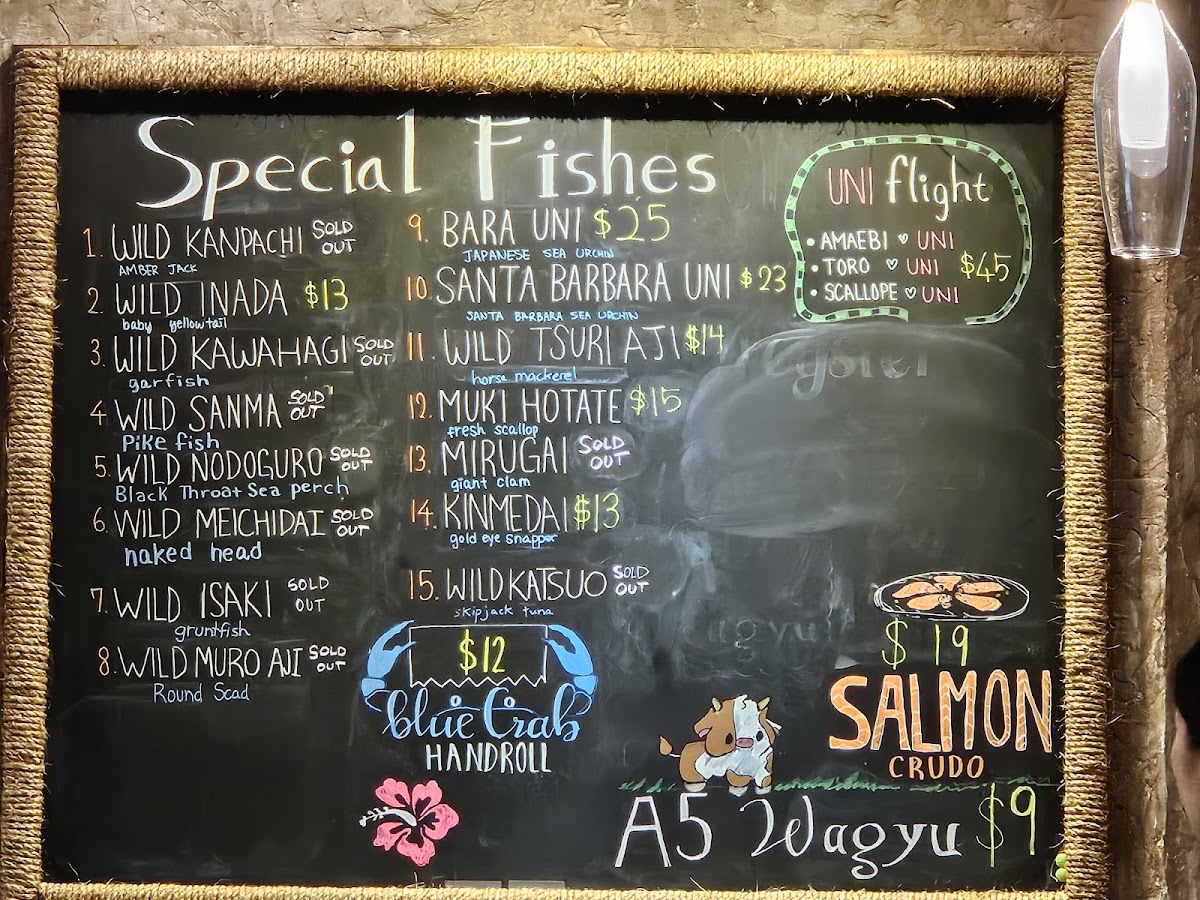 Special Fishes
1. WILD KANPACHI SOLD OUT
AMBER JACK
2. WILD INADA $13
baby yellowtail
3. WILD KAWAHAGI SOLD OUT
garfish
4 WILD SANMA SOLD OUT
Pike fish
5. WILD NODOGURO SOLD OUT
Black Throat Sea perch
6. WILD MEICHIDAI SOLD OUT
naked head
7. WILD ISAKI SOLD OUT
gruntfish
8. WILD MURO AJI SOLD OUT
Round Scad
9. BARA UNI $25
JAPANESE SEA URCHIN
10. SANTA BARBARA UNI $23
SANTA BARBARA SEA URCHIN
11. WILD TSURI AJI $14
horse mackerel
12. MUKI HOTATE $15
fresh scallop
13. MIRUGAI SOLD OUT
giant clam
14. KINMEDAI $13
gold eye snapper
15. WILD KATSUO SOLD OUT
skipjack tuna
$12
Blue Crab
HANDROLL
UNI flight
• AMAEBI ♡ UNI
• TORO ♡ UNI $45
• SCALLOPE ♡ UNI
$19
SALMON
CRUDO
A5 Wagyu $9